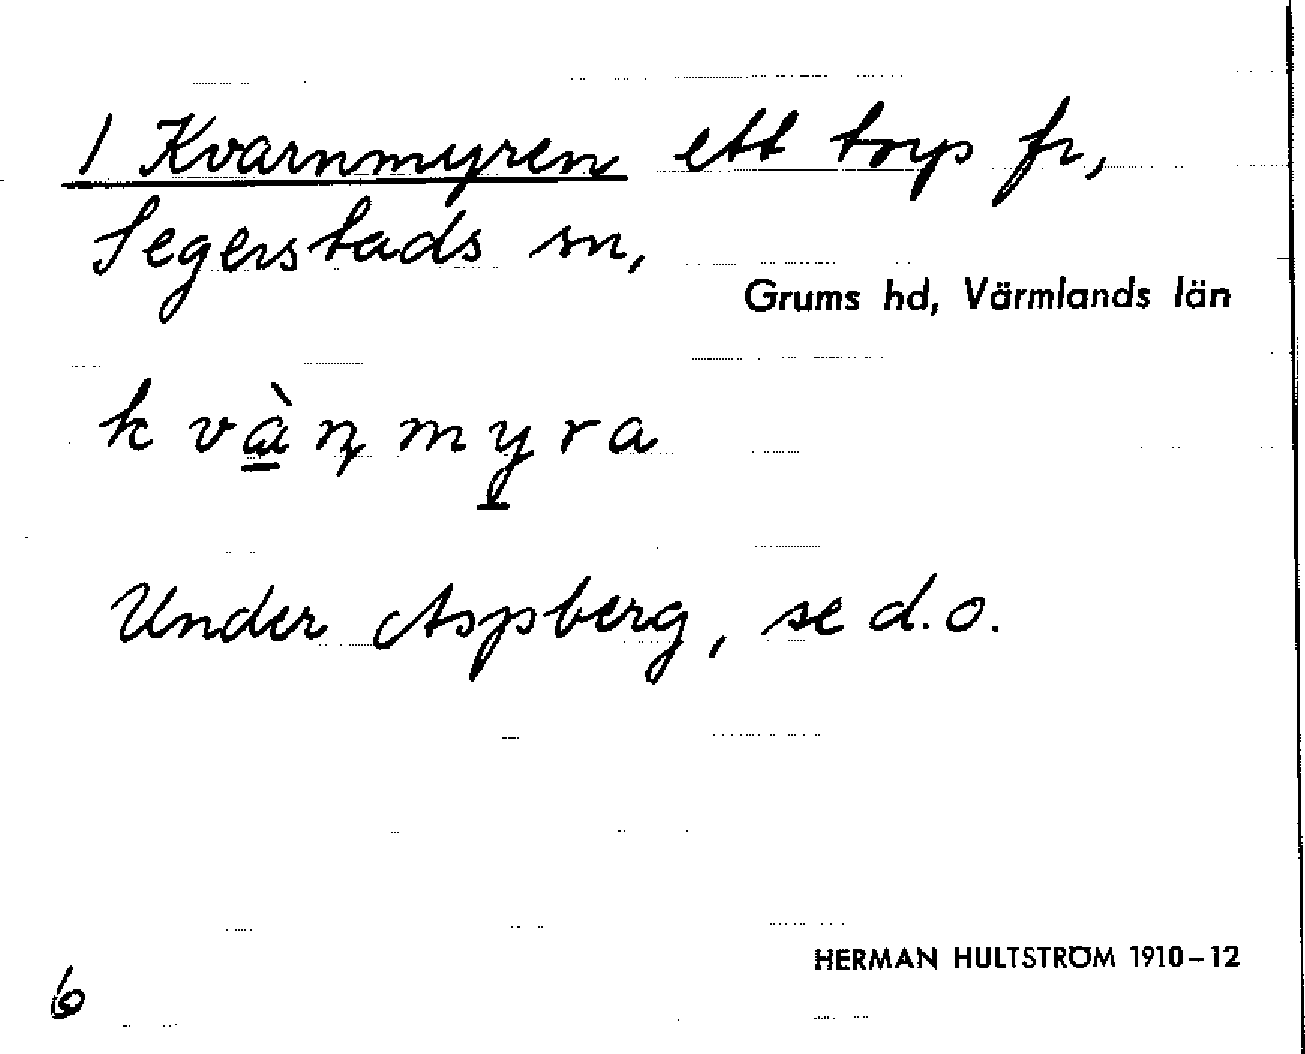 1 Kvarnmyren ett torp fr,
Segerstads sn,
Grums hd, Värmlands län
k v à̲ ɳ m y̲ r a
Under Aspberg, se d.o.
HERMAN HULTSTRÖM 1910–12
6